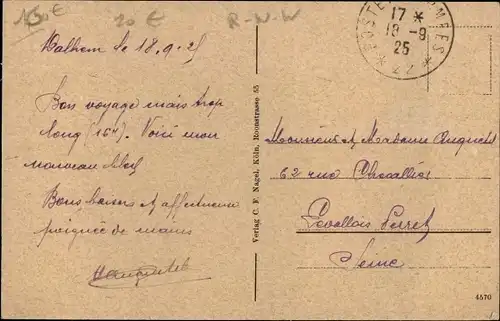 20 €
R-W-W
17 *
18 - 9
25
* POSTE
* 77
le 18.9.25
Bon voyage mais trop
long (15h). Voici mon
nouveau
Bons baisers et affectueuse
poignée de mains
Verlag C. F. Nagel, Köln, Roonstrasse 55
Monsieur et Madame
62 rue Chevallier
Levallois Perret
Seine
4570